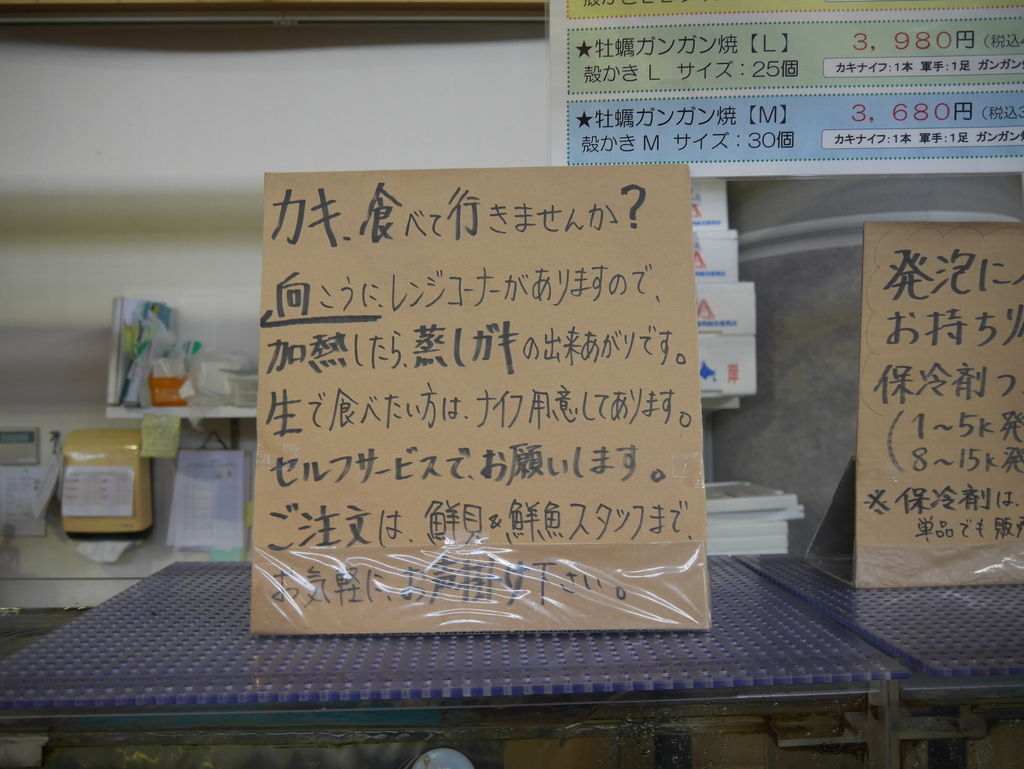 ★牡蠣ガンガン焼【L】 3,980円(税込
殻かき L サイズ:25個 カキナイフ:1本 軍手:1足 ガンガン
★牡蠣ガンガン焼【M】 3,680円(税込3
殻かき M サイズ:30個 カキナイフ:1本 軍手:1足 ガンガン
カキ、食べて行きませんか?
向こうに、レンジコーナーがありますので、
加熱したら、蒸しガキの出来あがりです。
生で食べたい方は、ナイフ用意してあります。
セルフサービスで、お願いします。
ご注文は、鮮貝&鮮魚スタッフまで、
お気軽に、お声掛け下さい。
発泡に
お持ち
保冷剤
(1〜5k 発
8〜15k 発
※保冷剤は、
単品でも販売
岸